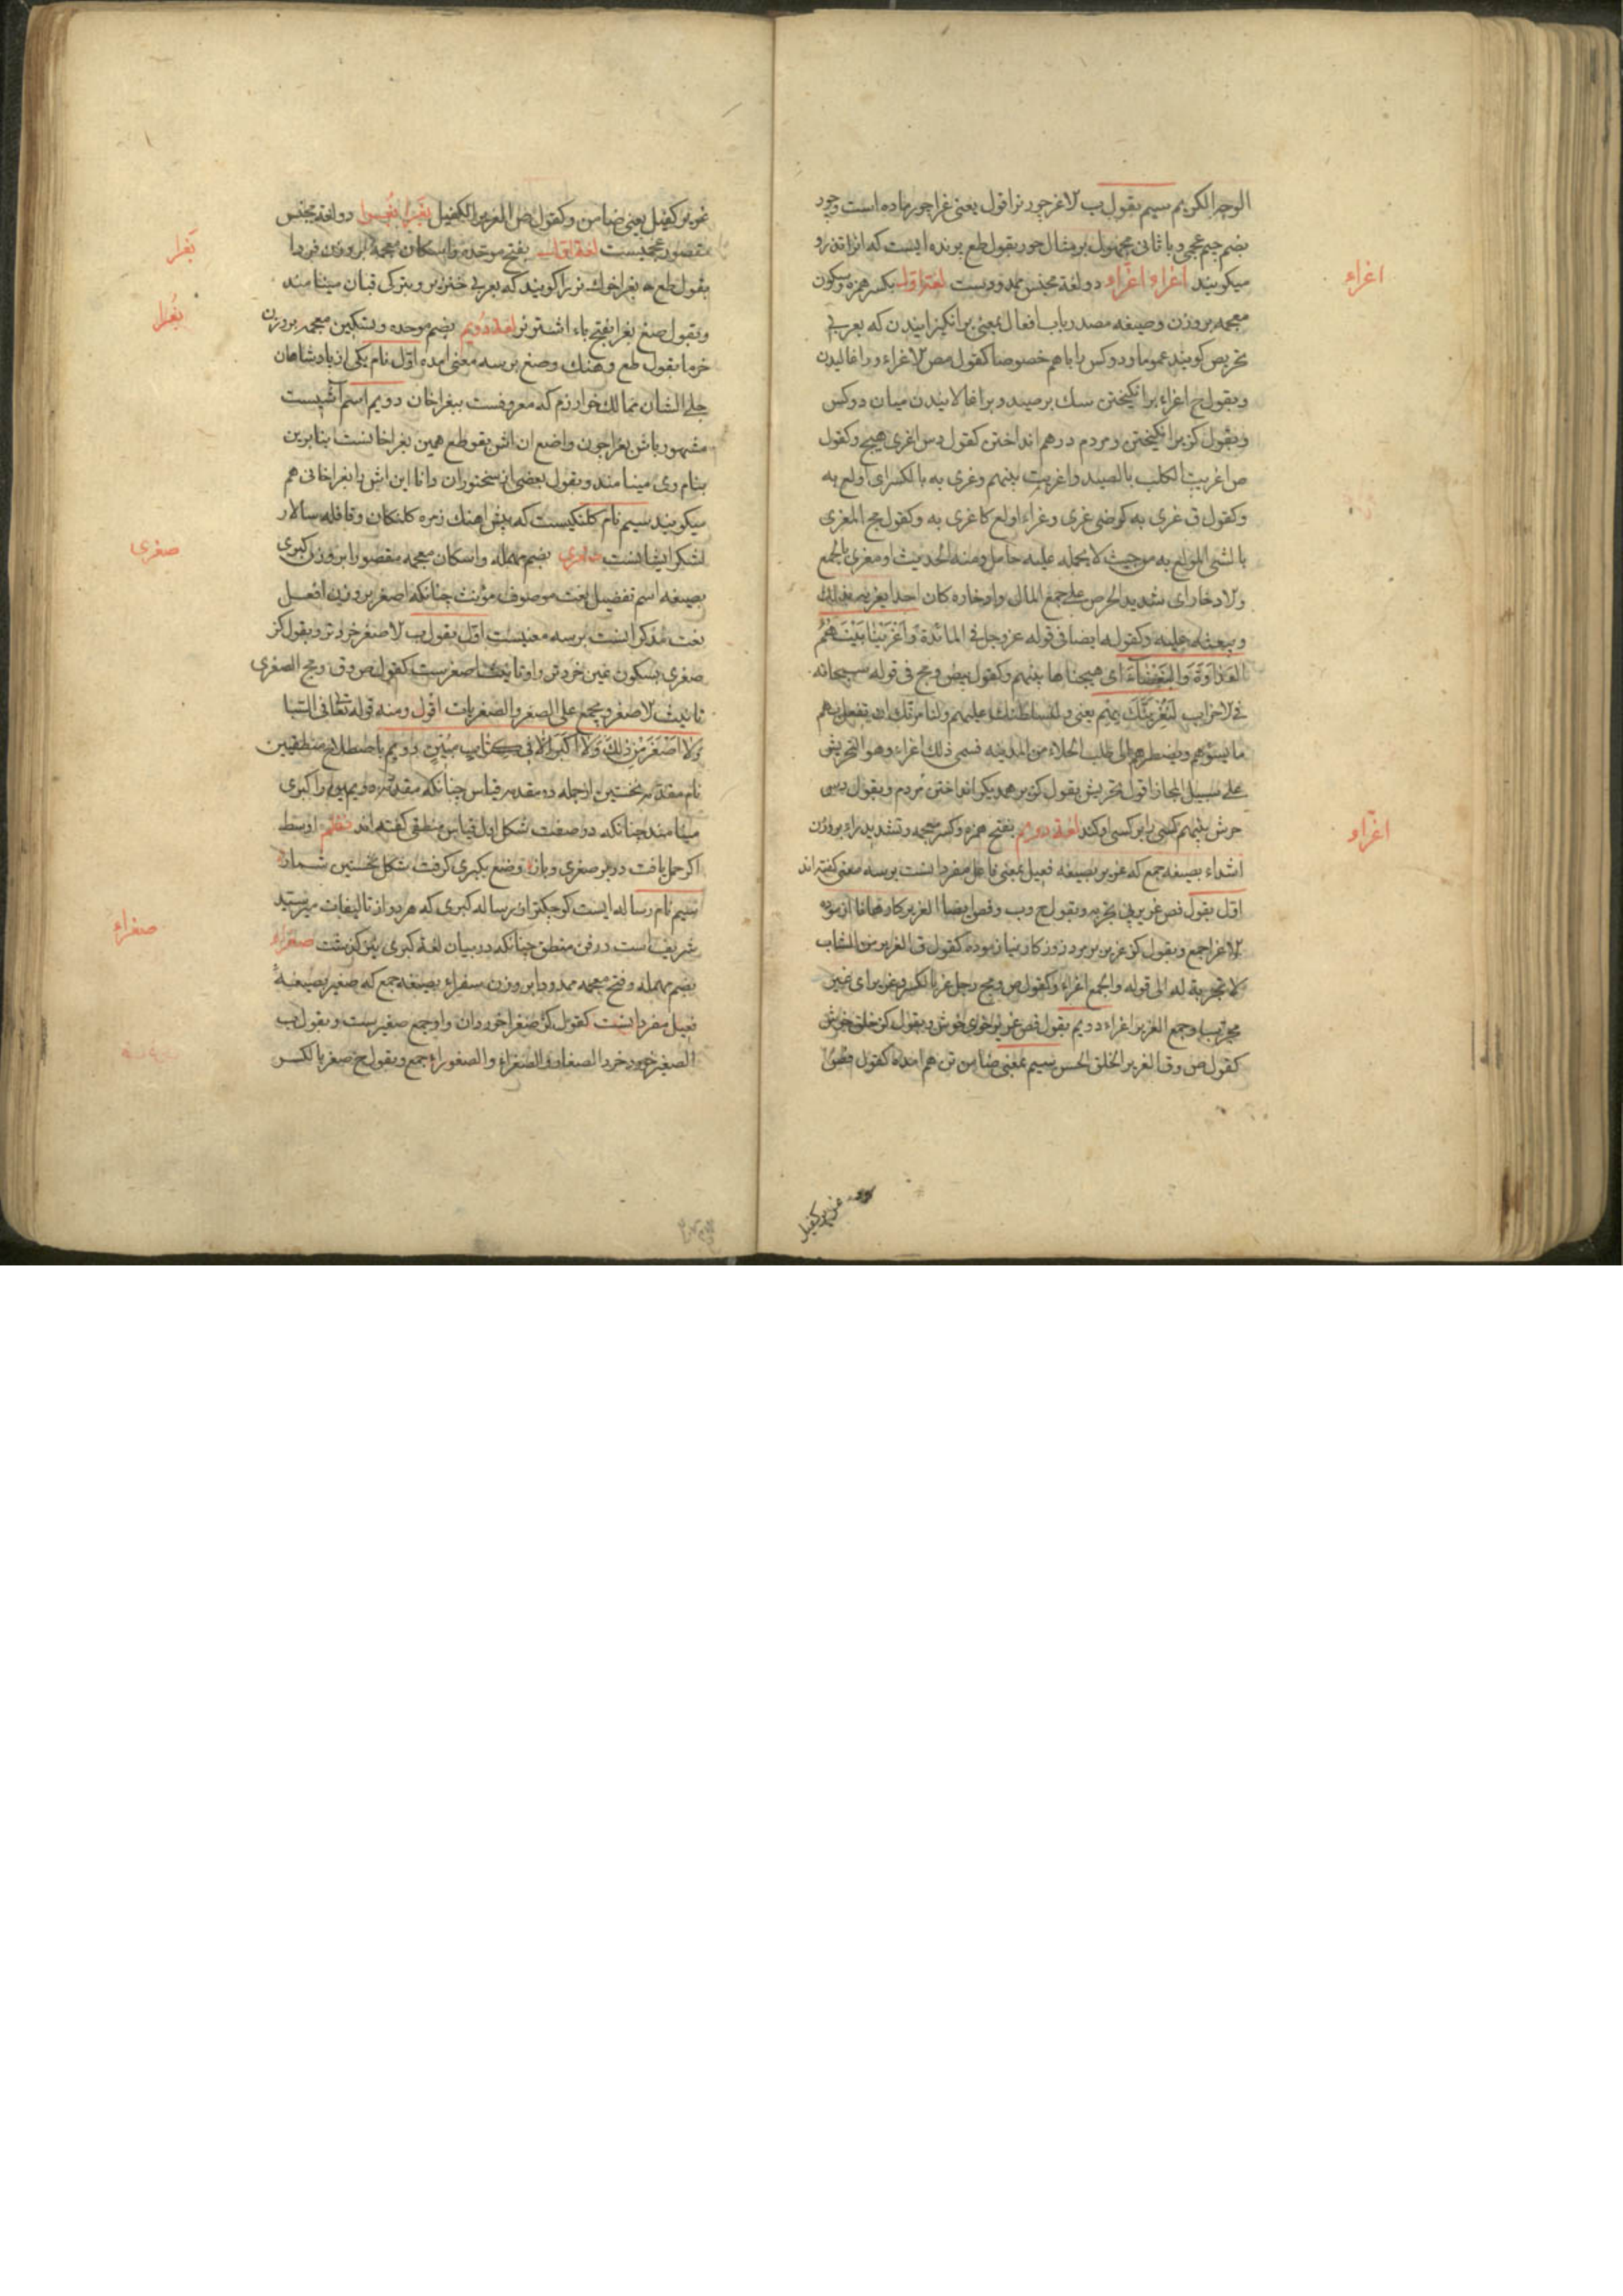 الوجه الکریم سیم بقول ب لاغر چور نر اقول یعنی غرا چور ماده است وچور
بضم جیم عجمی و با ثانی مجهول بر مثال حور بقول طع پرنده ایست که انرا تذرو
میکویند اغراء اغراء دو لغة مجنس ممدودست لغة اول بکسر همزه وسکون
معجمه بر وزن وصیغه مصدر باب افعال بمعنی برانکیزانیدن که بعربی
تحریص کویند عموما ودو کس را باهم خصوصا کقول مص لاغراء ورافالیدن
وبقول ح اغراء برانکیختن سک بر صید وبرافالانیدن میان دو کس
وبقول کز برانکیختن ومردم درهم انداختن کقول دس اغری هیج وکقول
ص اغریت الکلب بالصید واغریت بینهم وغری به بالکسر ای اولع به
وکقول ق غری به کرضی غری وغراء اولع کاغری به وکقول مج المغری
بالشی المولع به من حیث لا یحمله علیه حامل ومنه الحدیث او مغری بالجمع
ولادخار ای شدید الحرص علی جمع المال وادخاره کان احدا یغریه بذلک
ویبعثه علیه وکقوله ایضا فی قوله عز وجل فی المائدة وَاَغْرَیْنا بَیْنَهُمُ
العَدَاوَةَ وَالبَغْضَاءَ ای هیجناها بینهم وکقول بیض ومج فی قوله سبحانه
فی لاحزاب لَنُغْرِیَنَّکَ بِهِمْ یعنی ولنسلطنک علیهم ولنامرنک ان تفعل بهم
ما یسؤهم ویضطرهم الی طلب الجلاء من المدینه فسمی ذلک اغراء وهو التحریش
علی سبیل المجاز اقول تحریش بقول کز بر همدیکر انداختن مردم وبقول دس
حرش بینهم کسی را بر کسی اوکند لغة دویم بفتح همزه وکسر معجمه وتشدید راء بر وزن
اشداء بصیغه جمع که غریر بصیغه فعیل بمعنی فاعل مفرد انست بر سه معنی کفته اند
اول بقول فص غریر بی تجربه وبقول ح وب وفص ایضا الغریر کارها نا ازموده
لاغرا جمع وبقول کز غریر بر مرد روز کار نیازموده کقول ق الغریر من الشاب
لا تجربة له الی قوله والجمع اغراء وکقول ص ومج رجل غر بالکسر وغریر ای غیر
مجرب وجمع الغریر اغراء دویم بقول فص غریر خوی خوش وبقول کز خلق خوش
کقول ص وق الغریر الخلق الحسن سیم بمعنی ضامن تن هم امده کقول فص
غریر کفیل
اغراء
اغراء
غریر کفیل یعنی ضامن وکقول ص الغریر الکفیل بغرا بغرا دو لغة مجنس
مقصور عجمیست لغة اول بفتح موحده واسکان معجمه بر وزن فردا
بقول طع بغرا خوک نر را کویند که بعربی خنزیر وبترکی قبان مینامند
وبقول صنع بغرا بفتح باء اشتر نر لغة دویم بضم موحده وتسکین معجمه بر وزن
خرما بقول طع وهنک وصنع بر سه معنی امده اول نام یکی از پادشاهان
جلی الشان ممالک خوارزم که معروفست ببغراخان دویم اسم آشیست
مشهور باش بغرا چون واضع ان اش بقول طع همین بغراخانست بنابرین
بنام وی مینامند وبقول بعضی از سخنوران دانا این اش را بغراخانی هم
میکویند سیم نام کلنکیست که پیش اهنک زمره کلنکان وقافله سالار
لشکر ایشانست صغری بضم مهمله واسکان معجمه مقصورا بر وزن کبری
بصیغه اسم تفضیل نعت موصوف مؤنث چنانکه اصغر بر وزن افعل
نعت مذکر انست بر سه معنیست اول بقول ب لاصغر خردتر وبقول کز
صغری بسکون غین خردتر واو تانیث اصغرست کقول ص وق ومج الصغری
تانیث لاصغر ویجمع علی الصغر والصغریات اقول ومنه قوله تعالی فی السبا
وَلا اَصْغَرُ مِنْ ذلِكَ وَلا اَکْبَرُ اِلّا فی کِتابٍ مُبینٍ دویم باصطلاح منطقیین
نام مقدمه نخستین از جمله دو مقدمه قیاس چنانکه مقدمه دویمین را کبری
مینامند چنانکه در صفت شکل اول قیاس منطقی کفته اند نظم اوسط
اکر حمل یافت در بر صغری وباز وضع بکبری کرفت شکل نخستین شمار
سیم نام رساله ایست کوچکتر از رساله کبری که هر دو از تالیفات میر سید
شریف است در فن منطق چنانکه در بیان لغة کبری پیش کذشت صغراء
بضم مهمله وفتح معجمه ممدودا بر وزن سفراء بصیغه جمع که صغیر بصیغهٔ
فعیل مفرد انست کقول کز صغرا خوردان واو جمع صغیرست وبقول ب
الصغیر خورد خرد الصغار والصغراء والصغوراء جمع وبقول ح صغر بالکسر
بغرا
بغرا
صغری
صغراء